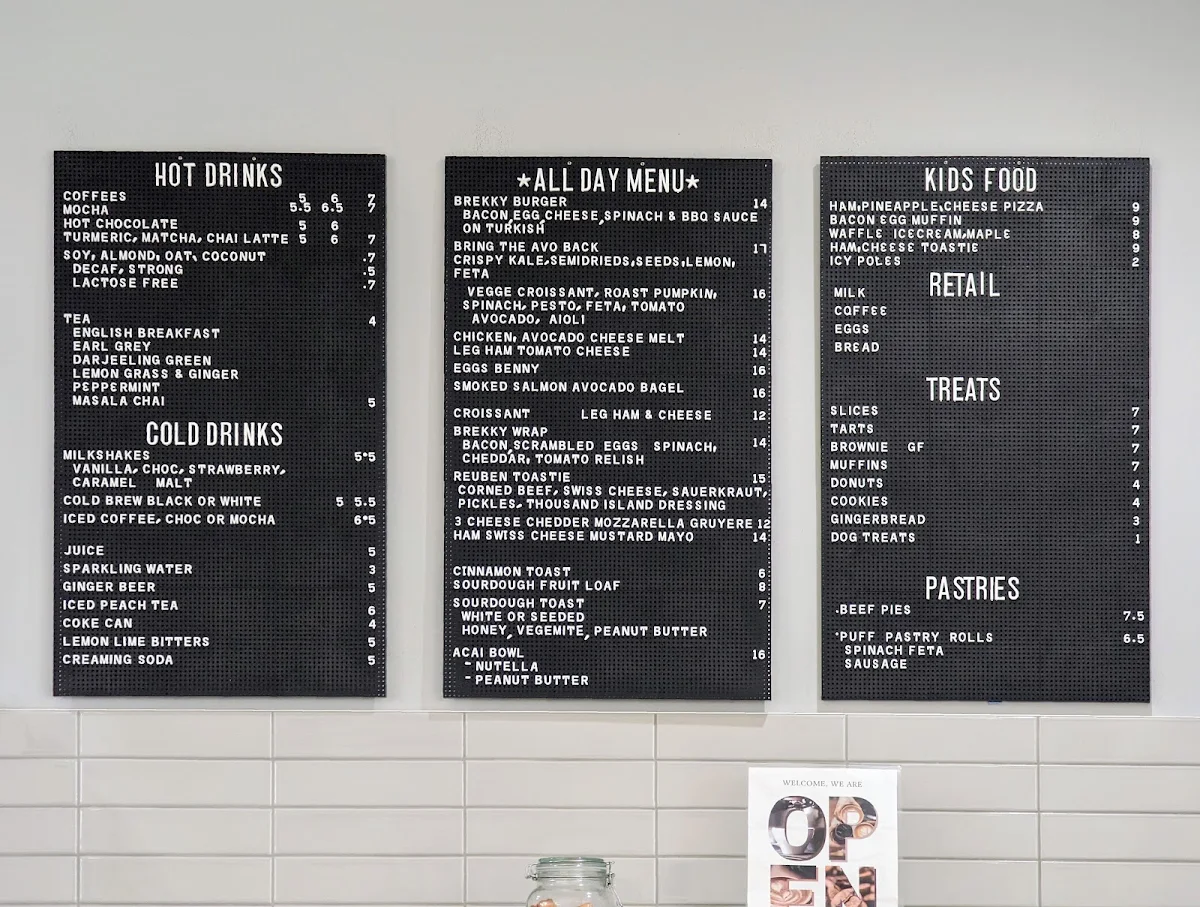 HOT DRINKS
COFFEES 5 6 7
MOCHA 5.5 6.5 7
HOT CHOCOLATE 5 6
TURMERIC, MATCHA, CHAI LATTE 5 6 7
SOY, ALMOND, OAT, COCONUT .7
DECAF, STRONG .5
LACTOSE FREE .7
TEA 4
ENGLISH BREAKFAST
EARL GREY
DARJEELING GREEN
LEMON GRASS & GINGER
PEPPERMINT
MASALA CHAI 5
COLD DRINKS
MILKSHAKES 5*5
VANILLA, CHOC, STRAWBERRY,
CARAMEL MALT
COLD BREW BLACK OR WHITE 5 5.5
ICED COFFEE, CHOC OR MOCHA 6*5
JUICE 5
SPARKLING WATER 3
GINGER BEER 5
ICED PEACH TEA 6
COKE CAN 4
LEMON LIME BITTERS 5
CREAMING SODA 5
*ALL DAY MENU*
BREKKY BURGER 14
BACON,EGG,CHEESE,SPINACH & BBQ SAUCE
ON TURKISH
BRING THE AVO BACK 17
CRISPY KALE,SEMIDRIEDS,SEEDS,LEMON,
FETA
VEGGE CROISSANT, ROAST PUMPKIN, 16
SPINACH, PESTO, FETA, TOMATO
AVOCADO, AIOLI
CHICKEN, AVOCADO CHEESE MELT 14
LEG HAM TOMATO CHEESE 14
EGGS BENNY 16
SMOKED SALMON AVOCADO BAGEL 16
CROISSANT LEG HAM & CHEESE 12
BREKKY WRAP
BACON,SCRAMBLED EGGS SPINACH, 14
CHEDDAR, TOMATO RELISH
REUBEN TOASTIE 15
CORNED BEEF, SWISS CHEESE, SAUERKRAUT,
PICKLES, THOUSAND ISLAND DRESSING
3 CHEESE CHEDDER MOZZARELLA GRUYERE 12
HAM SWISS CHEESE MUSTARD MAYO 14
CINNAMON TOAST 6
SOURDOUGH FRUIT LOAF 8
SOURDOUGH TOAST 7
WHITE OR SEEDED
HONEY, VEGEMITE, PEANUT BUTTER
ACAI BOWL 16
- NUTELLA
- PEANUT BUTTER
KIDS FOOD
HAM,PINEAPPLE,CHEESE PIZZA 9
BACON EGG MUFFIN 9
WAFFLE ICECREAM,MAPLE 8
HAM,CHEESE TOASTIE 9
ICY POLES 2
RETAIL
MILK
COFFEE
EGGS
BREAD
TREATS
SLICES 7
TARTS 7
BROWNIE GF 7
MUFFINS 7
DONUTS 4
COOKIES 4
GINGERBREAD 3
DOG TREATS 1
PASTRIES
.BEEF PIES 7.5
*PUFF PASTRY ROLLS 6.5
SPINACH FETA
SAUSAGE
WELCOME, WE ARE
OP
EN